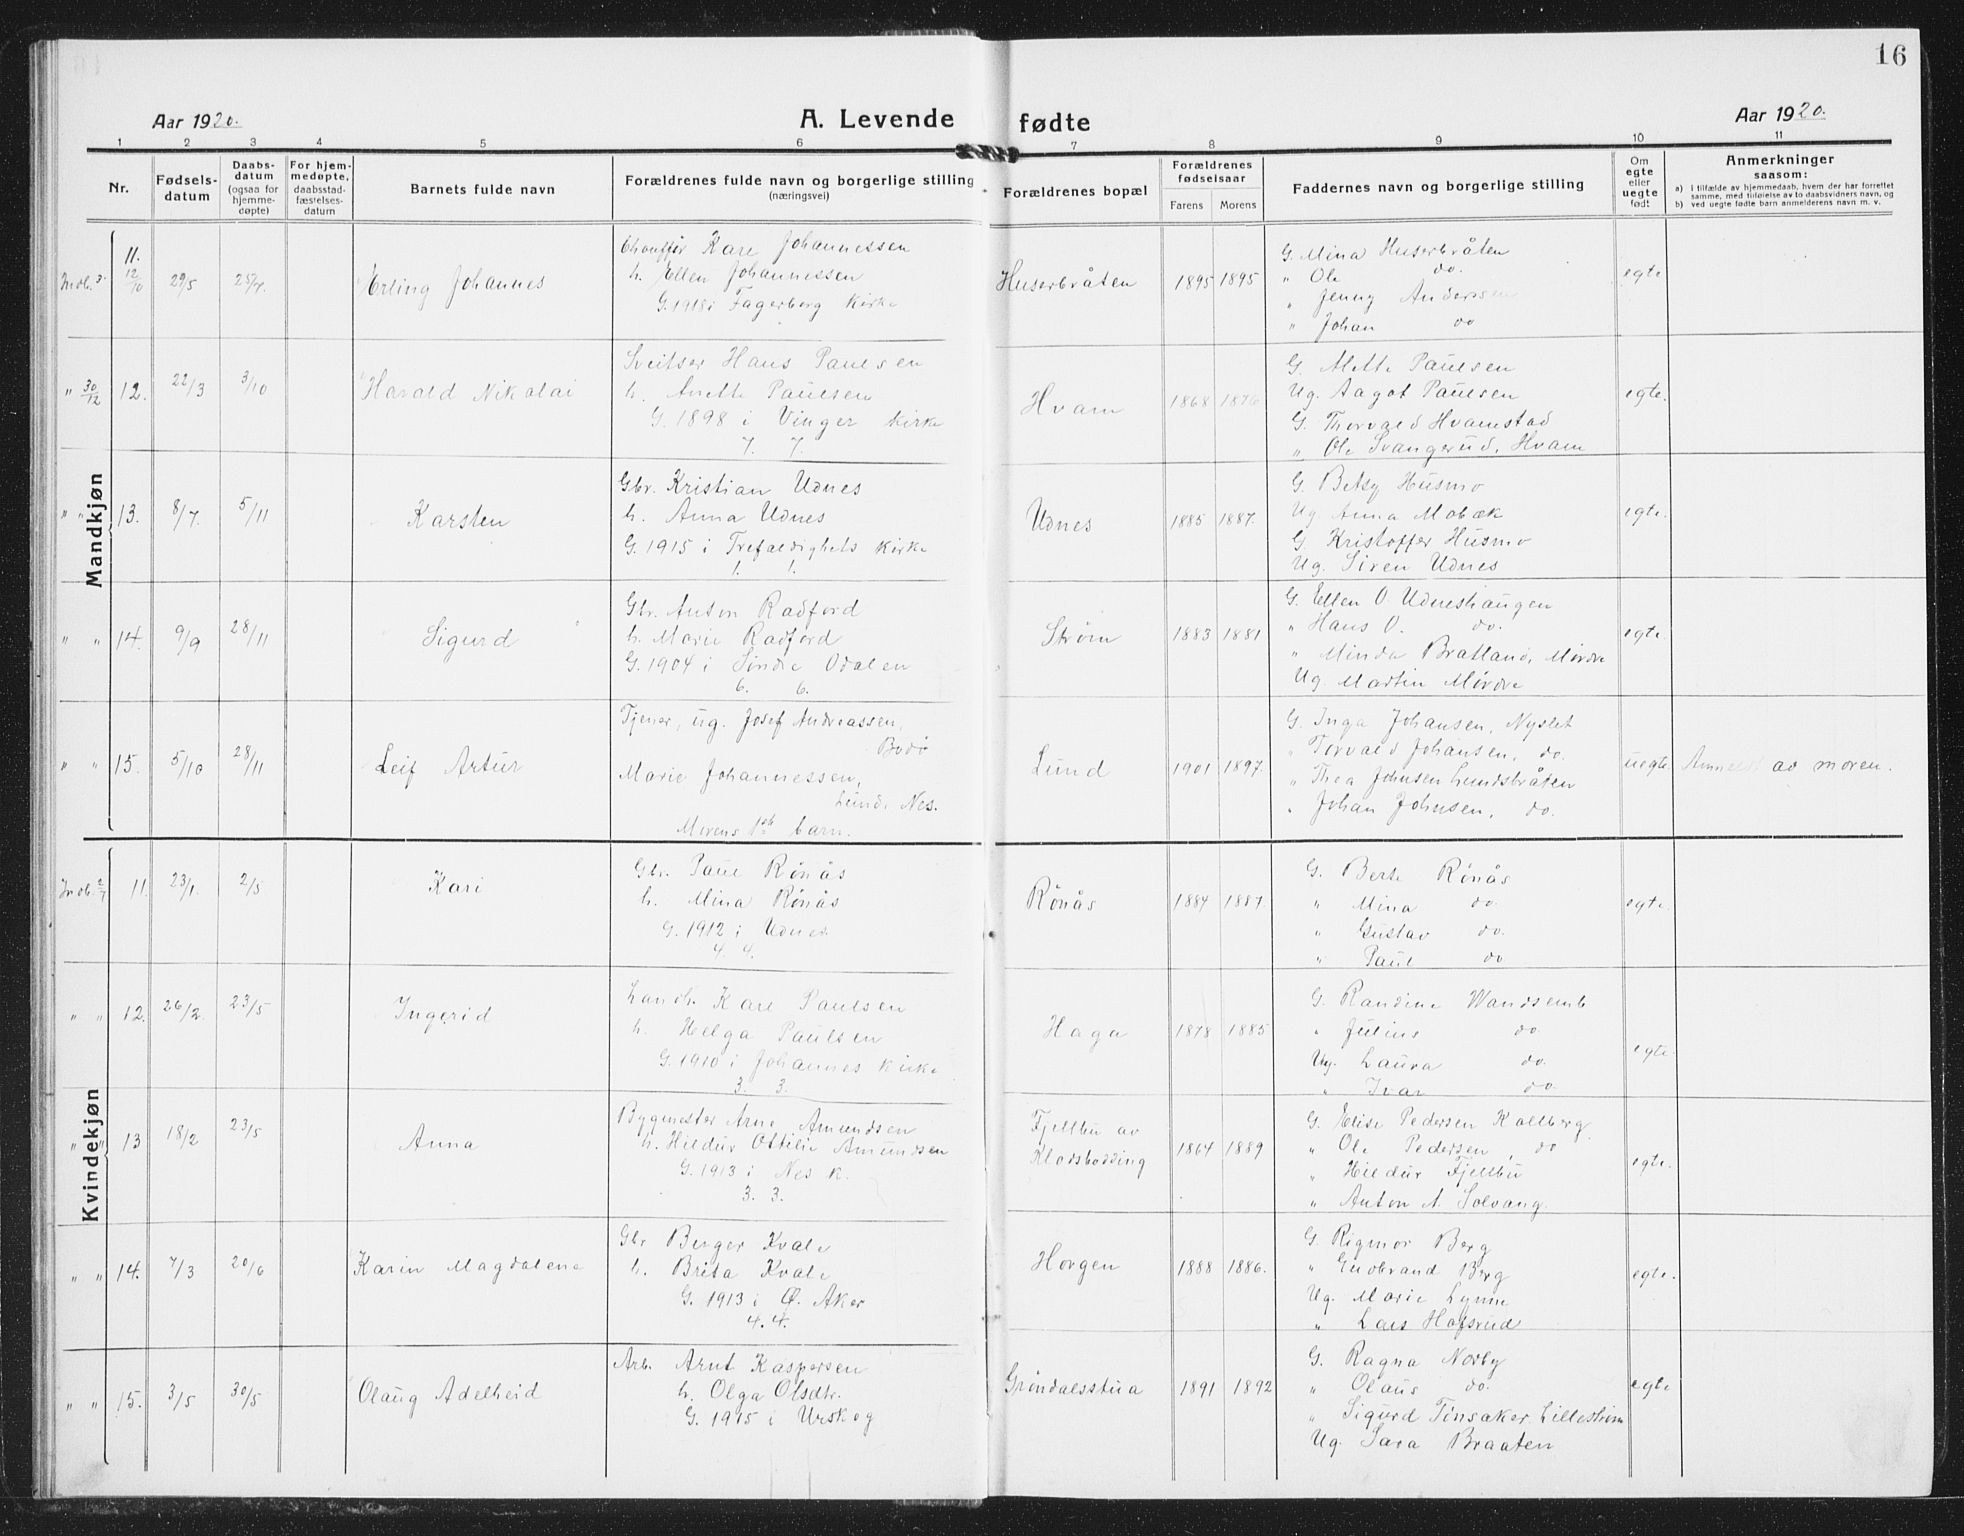 16
Aar 1920.
A. Levende fødte
Aar 1920.
1 2 3 4 5 6 7 8 9 10 11
Nr.
Fødsels-
datum
Daabs-
datum
(ogsaa for
hjemme-
døpte)
For hjem-
medøpte,
daabsstad-
fæstelses-
datum
Barnets fulde navn
Forældrenes fulde navn og borgerlige stilling
(næringsvei)
Forældrenes bopæl
Forældrenes
fødselsaar
Farens Morens
Faddernes navn og borgerlige stilling
Om
egte
eller
uegte
født
Anmerkninger
saasom:
a) i tilfælde av hjemmedaab, hvem der har forrettet
samme, med tilføielse av to daabsvidners navn, og
b) ved uegte fødte barn anmelderens navn m. v.
Mandkjøn
11.
12/10
29/5
25/7.
Erling Johannes
Chauffør Kare Johannessen
h. Ellen Johannessen
G. 1918 i Fagerborg Kirke
Huserbråten
1895 1895
G. Mina Huserbråten
" Ole do.
" Jenny Andersen
" Johan do
egte
" 30/12
12.
22/3
3/10
Harald Nikolai
Sveitser Hans Paulsen
h. Anette Paulsen
G. 1898 i Vinger Kirke
7. 7.
Hvam
1868 1876
G. Mette Paulsen
Ug. Aagot Paulsen
G. Thorvald Hvamstad
" Ole Svangerud, Hvam
egte.
" "
13.
8/7.
5/11
Karsten
Gbr. Kristian Udnes
h. Anna Udnes
G. 1915 i Trefoldighets Kirke
1. 1.
Udnes
1885 1887.
G. Betsy Husmo
Ug Anna Mobæk
G. Kristoffer Husmo
Ug. Siren Udnes
egte.
" "
14.
9/9
28/11
Sigurd
Gbr. Anton Radford
h. Marie Radford
G. 1904 i Søndre Odalen
6. 6.
Strøm
1883 1881
G. Ellen O. Udneshaugen
" Hans O. do.
" Minda Bratland, Mørdre
Ug. Martin Mørdre
egte.
" "
15.
5/10
28/11
Leif Artur
Tjener, ug. Josef Andreassen,
Bodø
Marie Johannessen,
Lund, Nes.
Morens 1ste barn.
Lund
1901 1897.
G. Inga Johansen, Nyslet
" Torvald Johansen, do.
" Thea Johnsen Lundsbråten
" Johan Johnsen, do.
uegte.
Anmeldt av moren.
Kvindekjøn
11.
23/1.
2/5
Kari
Gbr. Paul Rønås
h. Mina Rønås
G. 1912 i Udnes.
4. 4.
Rønås
1884 1887
G. Berte Rønås
" Mina do.
" Gustav do.
" Paul do
egte.
" "
12.
26/2.
23/5
Ingerid
Landh. Kare Paulsen
h. Helga Paulsen
G. 1910 i Johannes Kirke
3. 3.
Haga
1878 1885
G. Randine Wandsemb
" Julius do.
Ug. Laura do.
" Ivar do.
egte.
" "
13
18/2
23/5
Anna
Bygmester Arne Amundsen
h. Hildur Ottilie Amundsen
G. 1913 i Nes K.
3. 3.
Fjellbu av
Klodsbodding
1864 1889
G. Elise Pedersen Kollberg
" Ole Pedersen, do
" Hildur Fjellbu
" Anton A. Solvang.
egte.
" "
14.
7/3
20/6
Karin Magdalene
Gbr Berger Kvale
h. Brita Kvale
G. 1913 i Ø. Aker
4. 4.
Horgen
1888 1886.
G. Rigmor Berg
" Gudbrand Berg
Ug. Marie Lynne
" Lars Hofsrud
egte.
" "
15.
3/5
30/5
Olaug Adelheid
Arb. Arnt Kaspersen
h. Olga Olsdtr.
G. 1915 i Urskog
Grøndalsstua
1891 1892
G. Ragna Norby
" Olaus do.
" Sigurd Tønsaker, Lillestrøm
Ug. Sara Braaten
egte